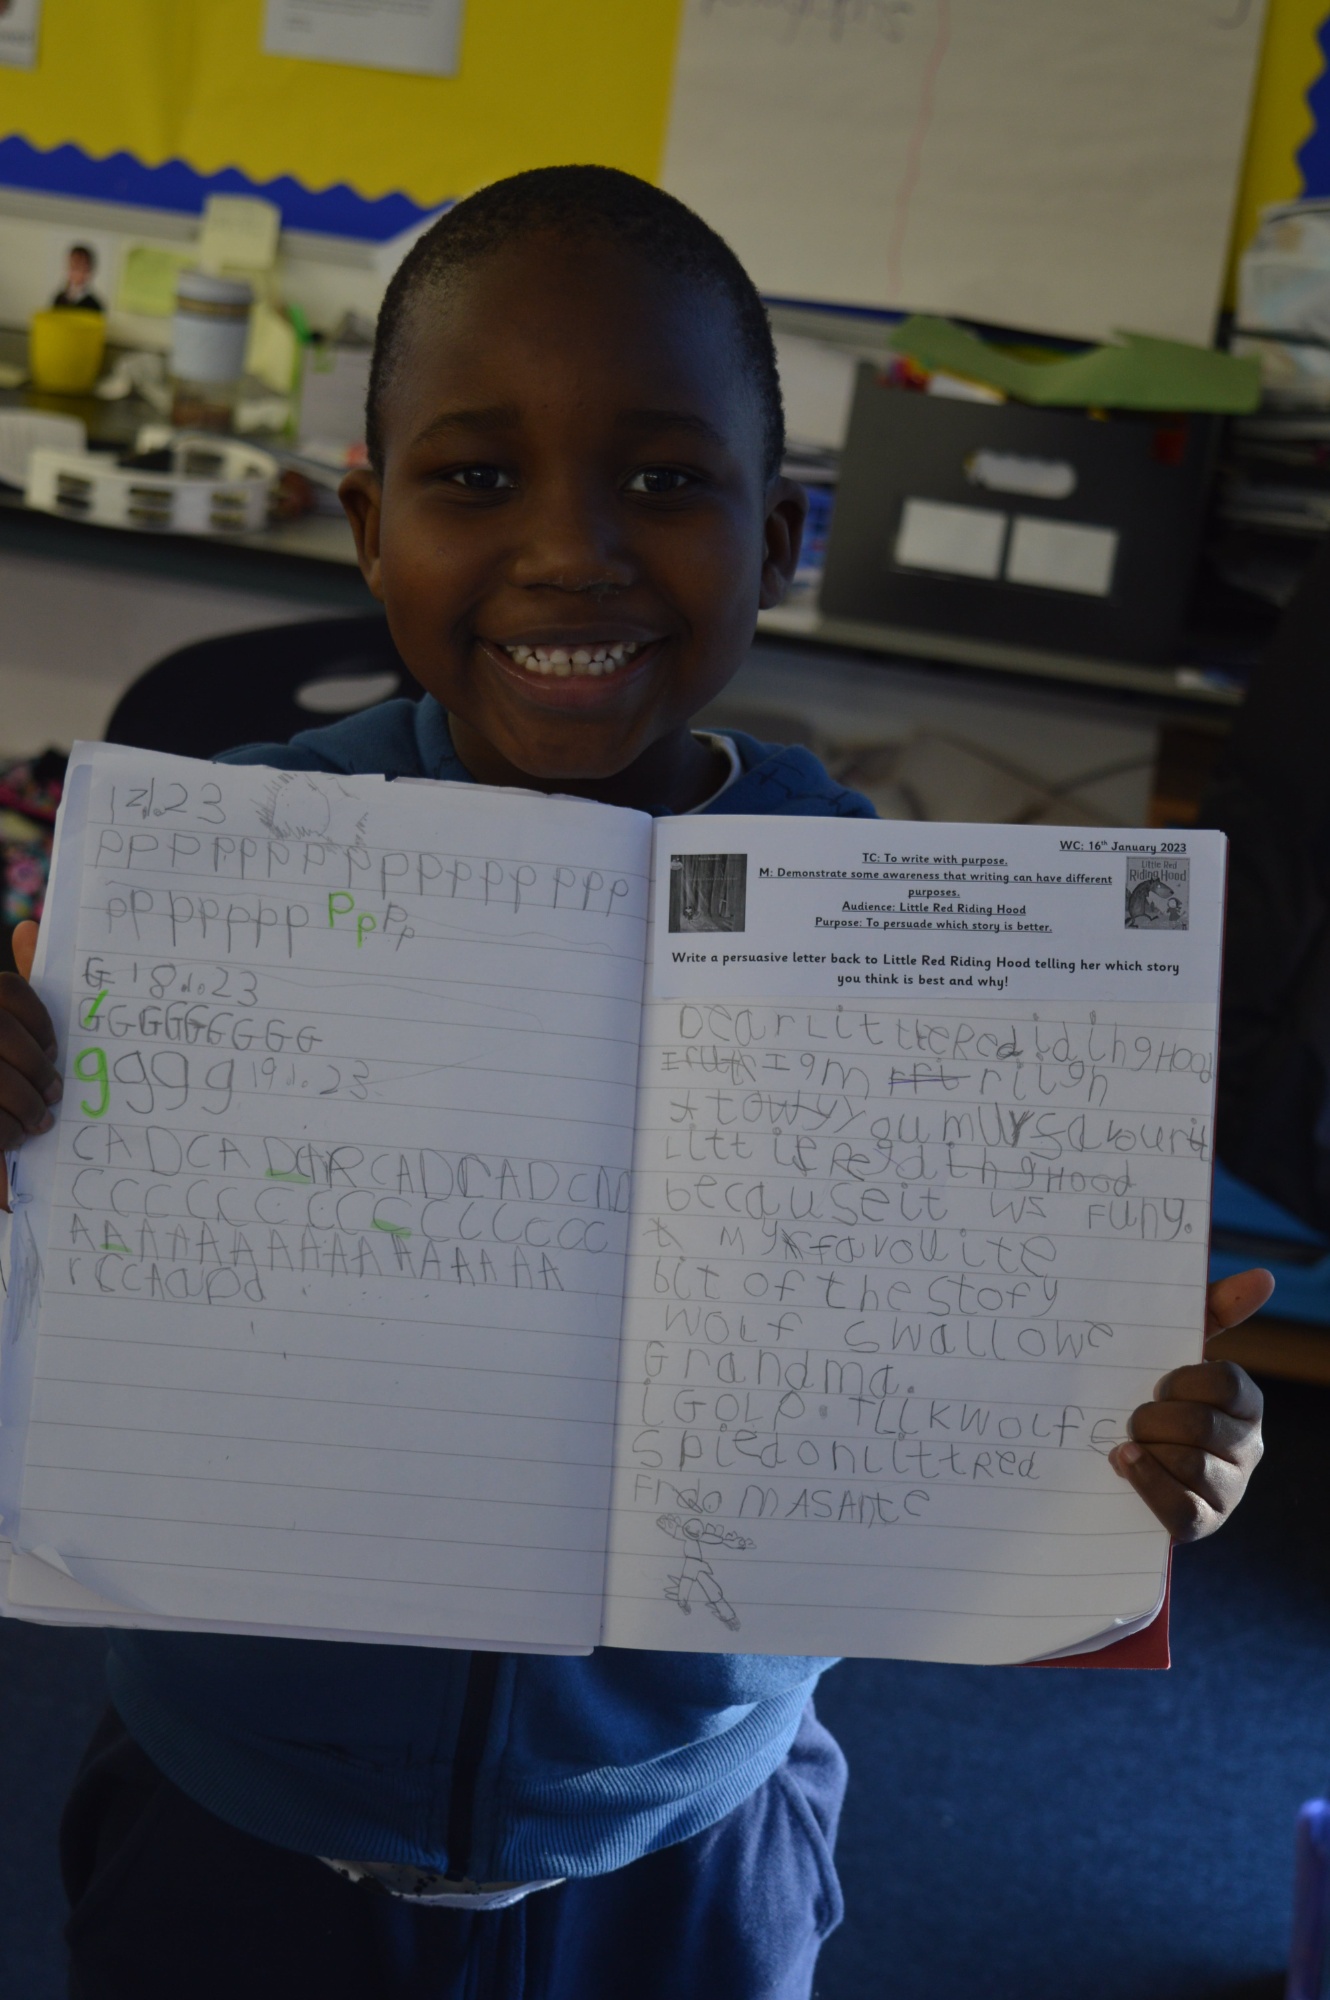 1z1.23
pppppppppppppppp
pppppppPppp
G 18.1.23
GGGGGGGGG
gggg 19.1.23
CADCAD CADCADCAD
CCCCCCCCCCCCCC
AAAAAAAAAAAAAAA
WC: 16th January 2023
TC: To write with purpose.
M: Demonstrate some awareness that writing can have different
purposes.
Audience: Little Red Riding Hood
Purpose: To persuade which story is better.
Little Red
Riding Hood
Write a persuasive letter back to Little Red Riding Hood telling her which story
you think is best and why!
Dear Little Red idihg Hood
I am ritign
to you my favourit
Litt is Red ihg Hood
becauseit ws Funy.
My favouite
bit of the Story
Wolf Swallowe
Grandma.
i GoLp. TLLKWolf
Spiedonlitt Red